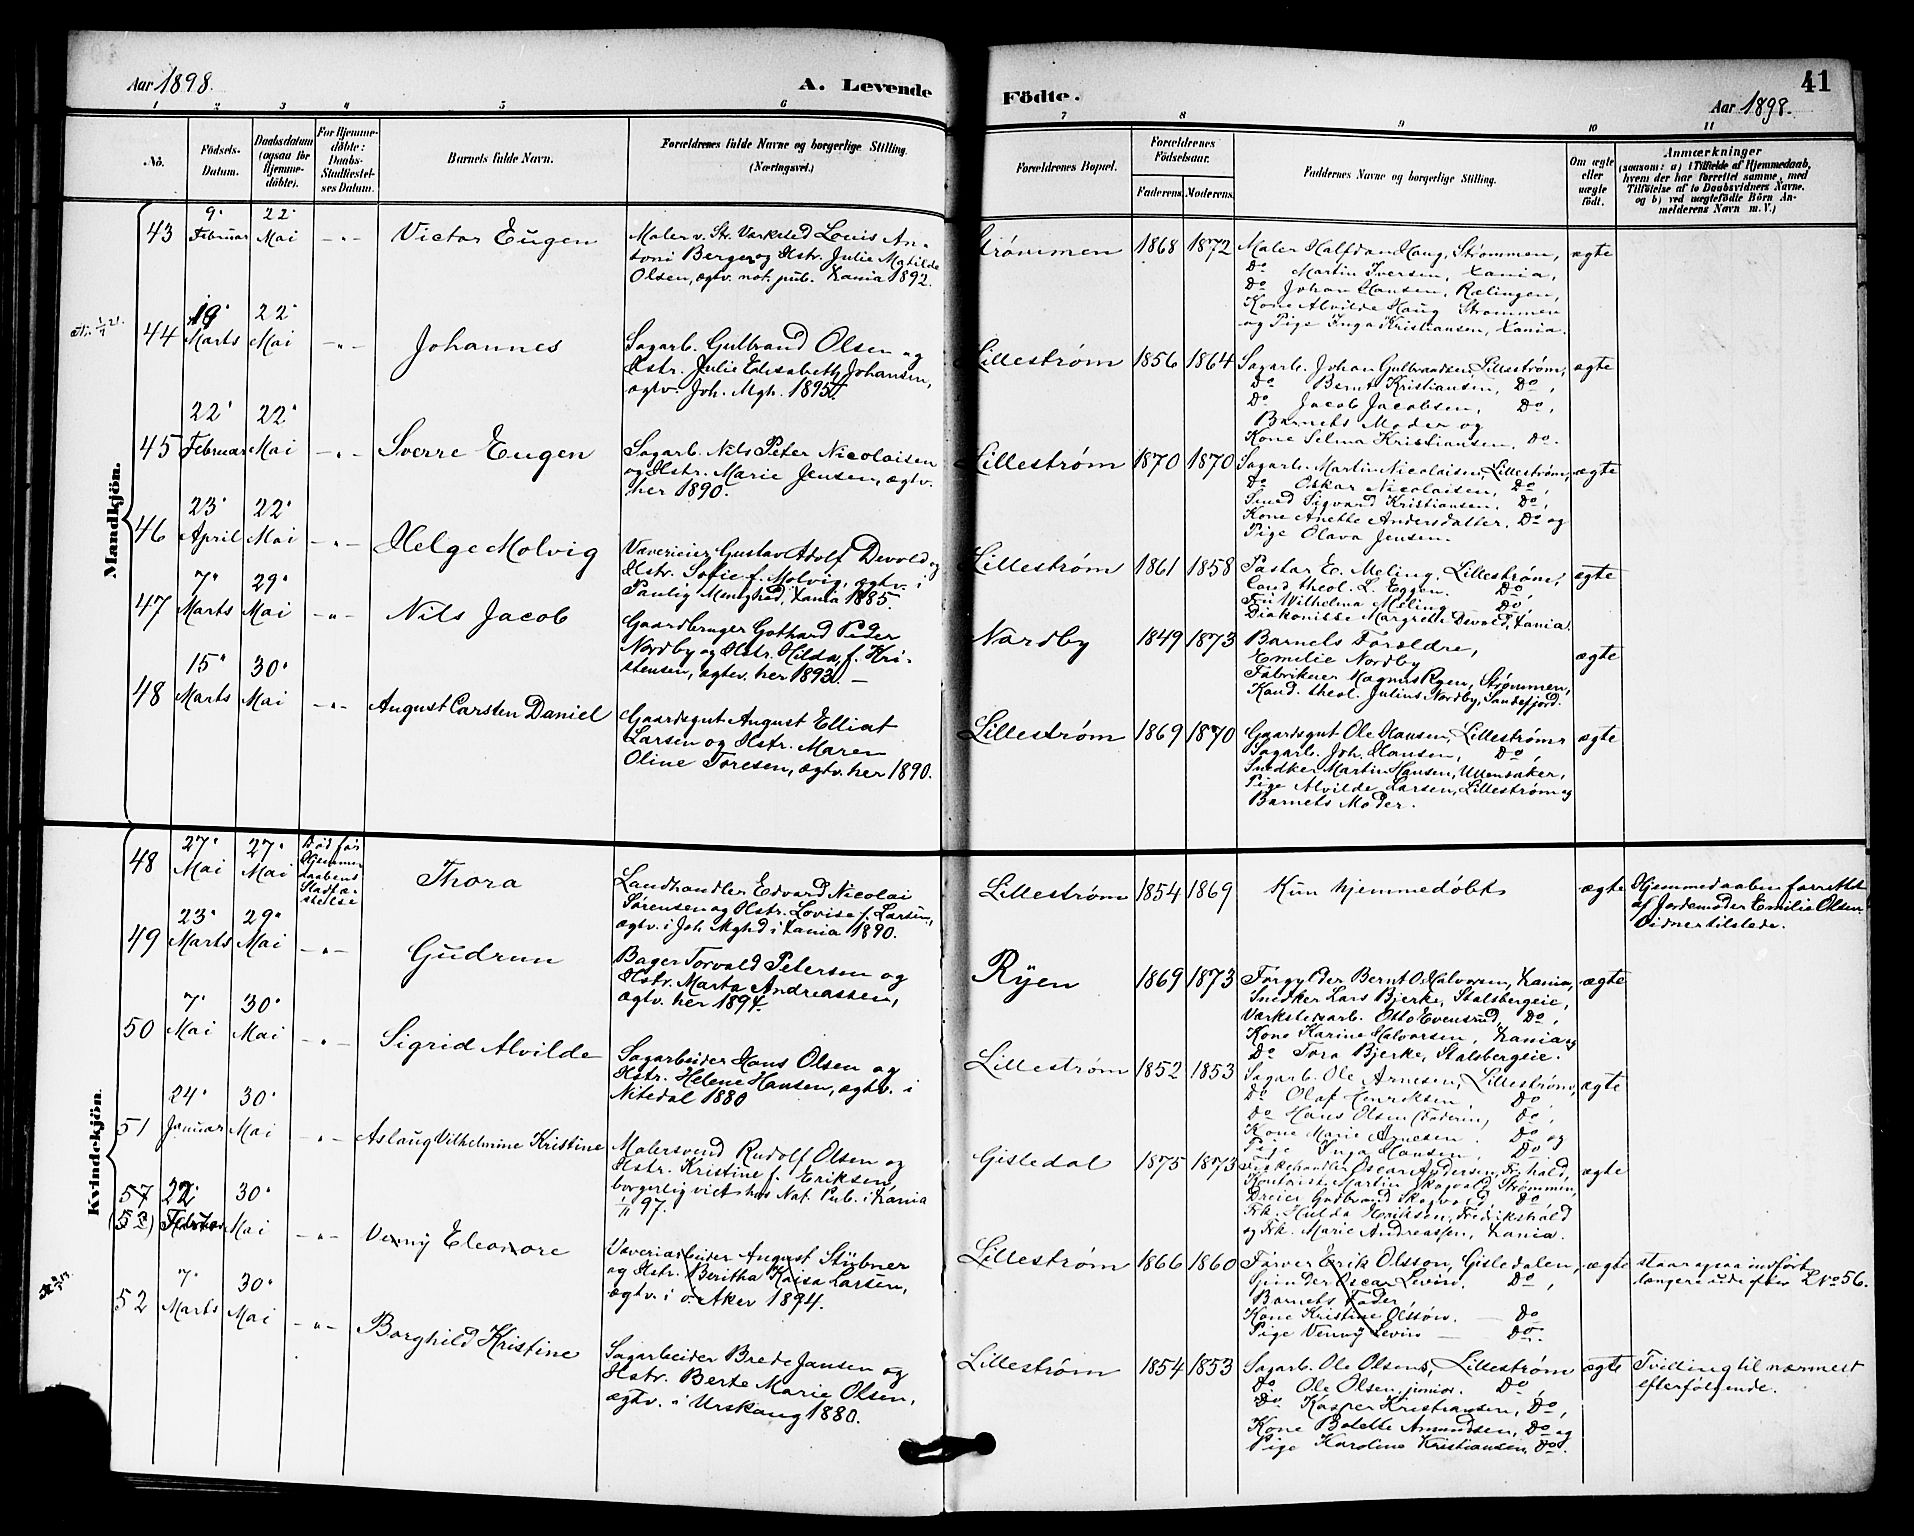 Aar 1898.
A. Levende
Födte.
41
Aar 1898.
1 2 3 4 5 6 7 8 9 10 11
No.
Födsels-
Datum.
Daabsdatum
(ogsaa for
Hjemme-
döbte).
For Hjemme-
döbte:
Daabs-
Stadfæstel-
ses Datum.
Barnets fulde Navn.
Forældrenes fulde Navne og borgerlige Stilling.
(Næringsvei.)
Forældrenes Bopæl.
Forældrenes
Födselsaar.
Faderens. Moderens.
Faddernes Navne og borgerlige Stilling.
Om ægte
eller
uægte
födt.
Anmærkninger
(saasom: a) i Tilfælde af Hjemmedaab,
hvem der har forrettet samme, med
Tilföielse af to Daabsvidners Navne,
og b) ved uægtefödte Börn An-
melderens Navn m. V.)
Mandkjön.
43
9'
Februar
22'
Mai
Victor Eugen
Maler v. St. Værksted Louis An-
toni Berger og Hstr. Julie Matilde
Olsen, ægtv. not. pub. Xania 1892.
Strømmen
1868 1872
Maler Halfdan Haug, Strømmen,
Do Martin Iversen, Xania,
Do Johan Hansen, Rælingen,
Kone Alvilde Haug Strømmen
og Pige Inga Kristiansen, Xania.
ægte
44
19'
Marts
22'
Mai
Johannes
Sagarb. Gulbrand Olsen og
Hstr. Julie Elisabeth Johansen,
ægtv. Joh. Mgh. 1895.
Lillestrøm
1856 1864
Sagarb. Johan Gulbrandsen, Lillestrøm,
Do Bernt Kristiansen, Do,
Do Jacob Jacobsen, Do,
Barnets Moder og
Kone Selma Kristiansen, Do.
ægte
45
22'
Februar
22'
Mai
Sverre Eugen
Sagarb. Nils Peter Nicolaisen
og Hstr. Marie Jensen, ægtv.
her 1890.
Lillestrøm
1870 1870
Sagarb. Martin Nicolaisen, Lillestrøm,
Do Oskar Nicolaisen, Do,
Smed Sigvard Kristiansen, Do,
Kone Anette Andersdatter, Do og
Pige Olava Jensen.
ægte
46
23'
April
22'
Mai
Helge Molvig
Væverieier Gustav Adolf Devold og
Hstr. Sofie f. Molvig, ægtv. i
Paulig Menighed, Xania 1885.
Lillestrøm
1861 1858
Pastor E. Meling, Lillestrøm,
Cand. theol. L. Eggen. Do,
Fru Wilhelma Meling Do,
Diakonisse Margrethe Devold, Xania.
ægte
47
7'
Marts
29'
Mai
Nils Jacob
Gaardbruger Gothard Peder
Nordby og Hstr. Hilda, f. Kri-
stensen, ægtv. her 1893. –
Nordby
1849 1873
Barnets Forældre,
Emilie Nordby
Fabrikeier Magnus Ryen, Strømmen,
Kand. theol. Julius Nordby, Sandefjord.
ægte
48
15'
Marts
30'
Mai
August Carsten Daniel
Gaardsgut August Elliat
Larsen og Hstr. Maren
Oline Toresen, ægtv. her 1890.
Lillestrøm
1869 1870
Gaardsgut Ole Hansen, Lillestrøm,
Sagarb. Joh. Hansen, Do,
Snedker Martin Hansen, Ullensaker,
Pige Alvilde Larsen, Lillestrøm og
Barnets Moder.
ægte
Kvindekjön.
48
27'
Mai
27'
Mai
Død før
Hjemme
daabens
Stadfæ-
stelse
Thora
Landhandler Edvard Nicolai
Sørensen og Hstr. Lovise f. Larsen,
ægtv. i Joh. Mghd i Xania 1890.
Lillestrøm
1854 1869
Kun hjemmedøbt
ægte
Hjemmedaaben forrettet
af Jordemoder Emilie Olsen.
Vidner tilstede.
49
23'
Marts
29'
Mai
Gudrun
Bager Torvald Petersen og
Hstr. Marta Andreassen,
ægtv. her 1894.
Ryen
1869 1873
Forgylder Bernt O. Halvorsen, Xania,
Snedker Lars Bjerke, Stalsbergeie,
Værkstedsarb. Otto Evensrud, Do,
Kone Karine Halvorsen, Xania og
Do Tora Bjerke, Stalsbergeie.
ægte
50
7'
Mai
30'
Mai
Sigrid Alvilde
Sagarbeider Hans Olsen og
Hstr. Helene Hansen, ægtv. i
Nitedal 1880
Lillestrøm
1852 1853
Sagarb. Ole Arnesen, Lillestrøm,
Do Olaf Henriksen Do,
Do Hans Olsen (Faderen), Do,
Kone Marie Arnesen. Do og
Pige Inga Hansen, Do
ægte
51
24'
Januar
30'
Mai
Aslaug Vilhelmine Kristine
Malersvend Rudolf Olsen og
Hstr. Kristine f. Eriksen,
borgerlig viet hos Not. Pub. i Xania
97.
Gisledal
1875 1873
Oscar Andersen, Fr.hald,
Kontorist Martin Skogvold Strømmen,
Dreier Gudbrand Skogvold Do
Frk. Hulda Eriksen, Fredrikshald
og Frk. Marie Andreassen, Xania.
ægte
(52)
22'
Februar
30'
Mai
Venny Eleonore
Væveriarbeider August Stübner
og Hstr. Beritha Kaisa Larsen,
ægtv. i Ø. Aker 1894.
Lillestrøm
1866 1860
Farver Erik Olsson, Gisledalen,
Spinder Oscar Levin. Do,
Barnets Fader
Kone Kristine Olsson. – Do
Pige Venny Levin – Do.
ægte
staar ogsaa indført
længere ude efter L No 56.
52
7'
Marts
30'
Mai
Borghild Kristine
Sagarbeider Brede Jansen og
Hstr. Berte Marie Olsen,
ægtv. i Urskoug 1880.
Lillestrøm
1854 1853
Sagarb. Ole Olsens, Lillestrøm
Do Ole Olsen junior. Do,
Do Kasper Kristiansen, Do,
Kone Bolette Amundsen, Do og
Pige Karoline Kristiansen, Do.
ægte
Tvilling til nærmest
efterfølgende.